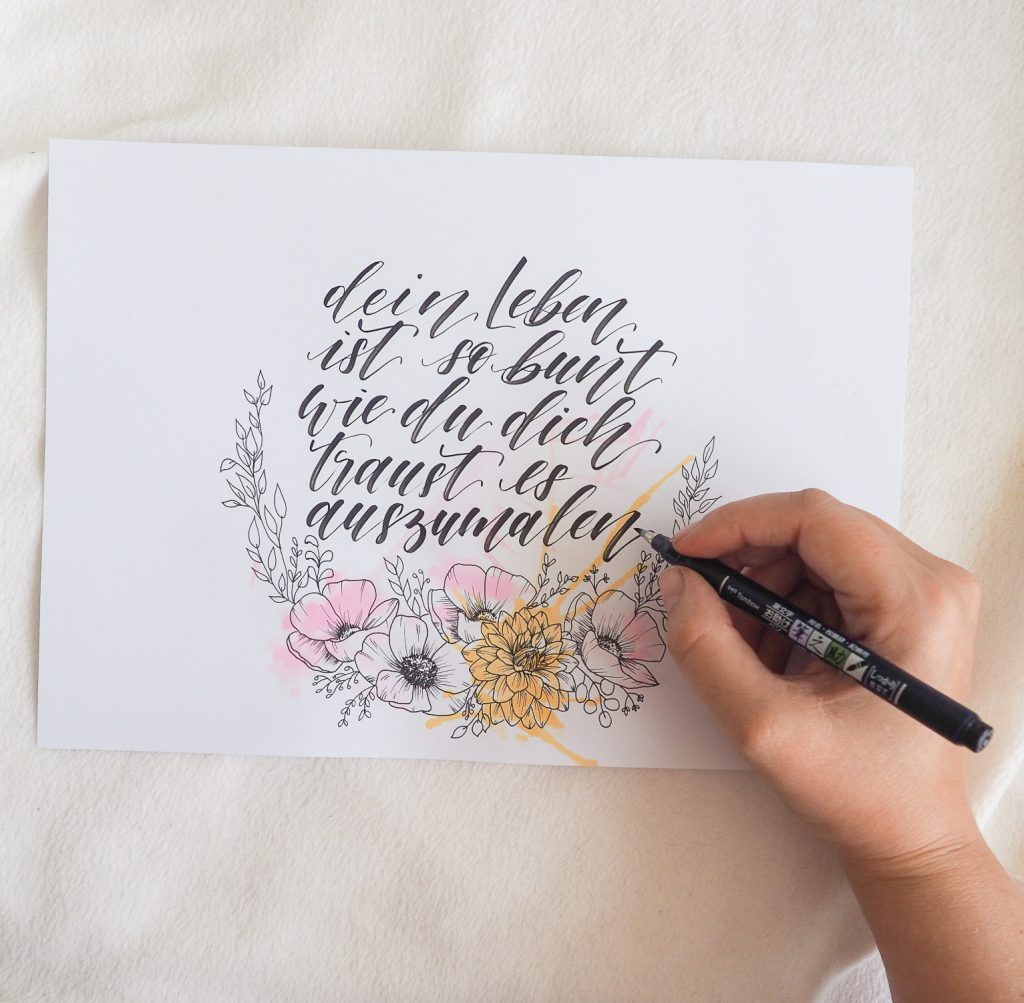 dein Leben
ist so bunt
wie du dich
traust es
auszumalen
Tombow
筆之助
しっかり